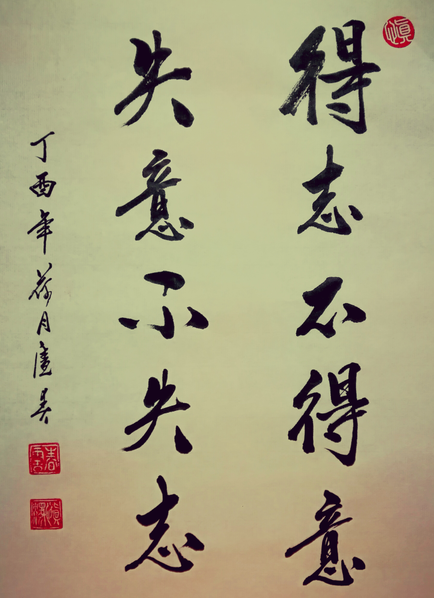 得志不得意
失意不失志
丁酉年荷月
慎